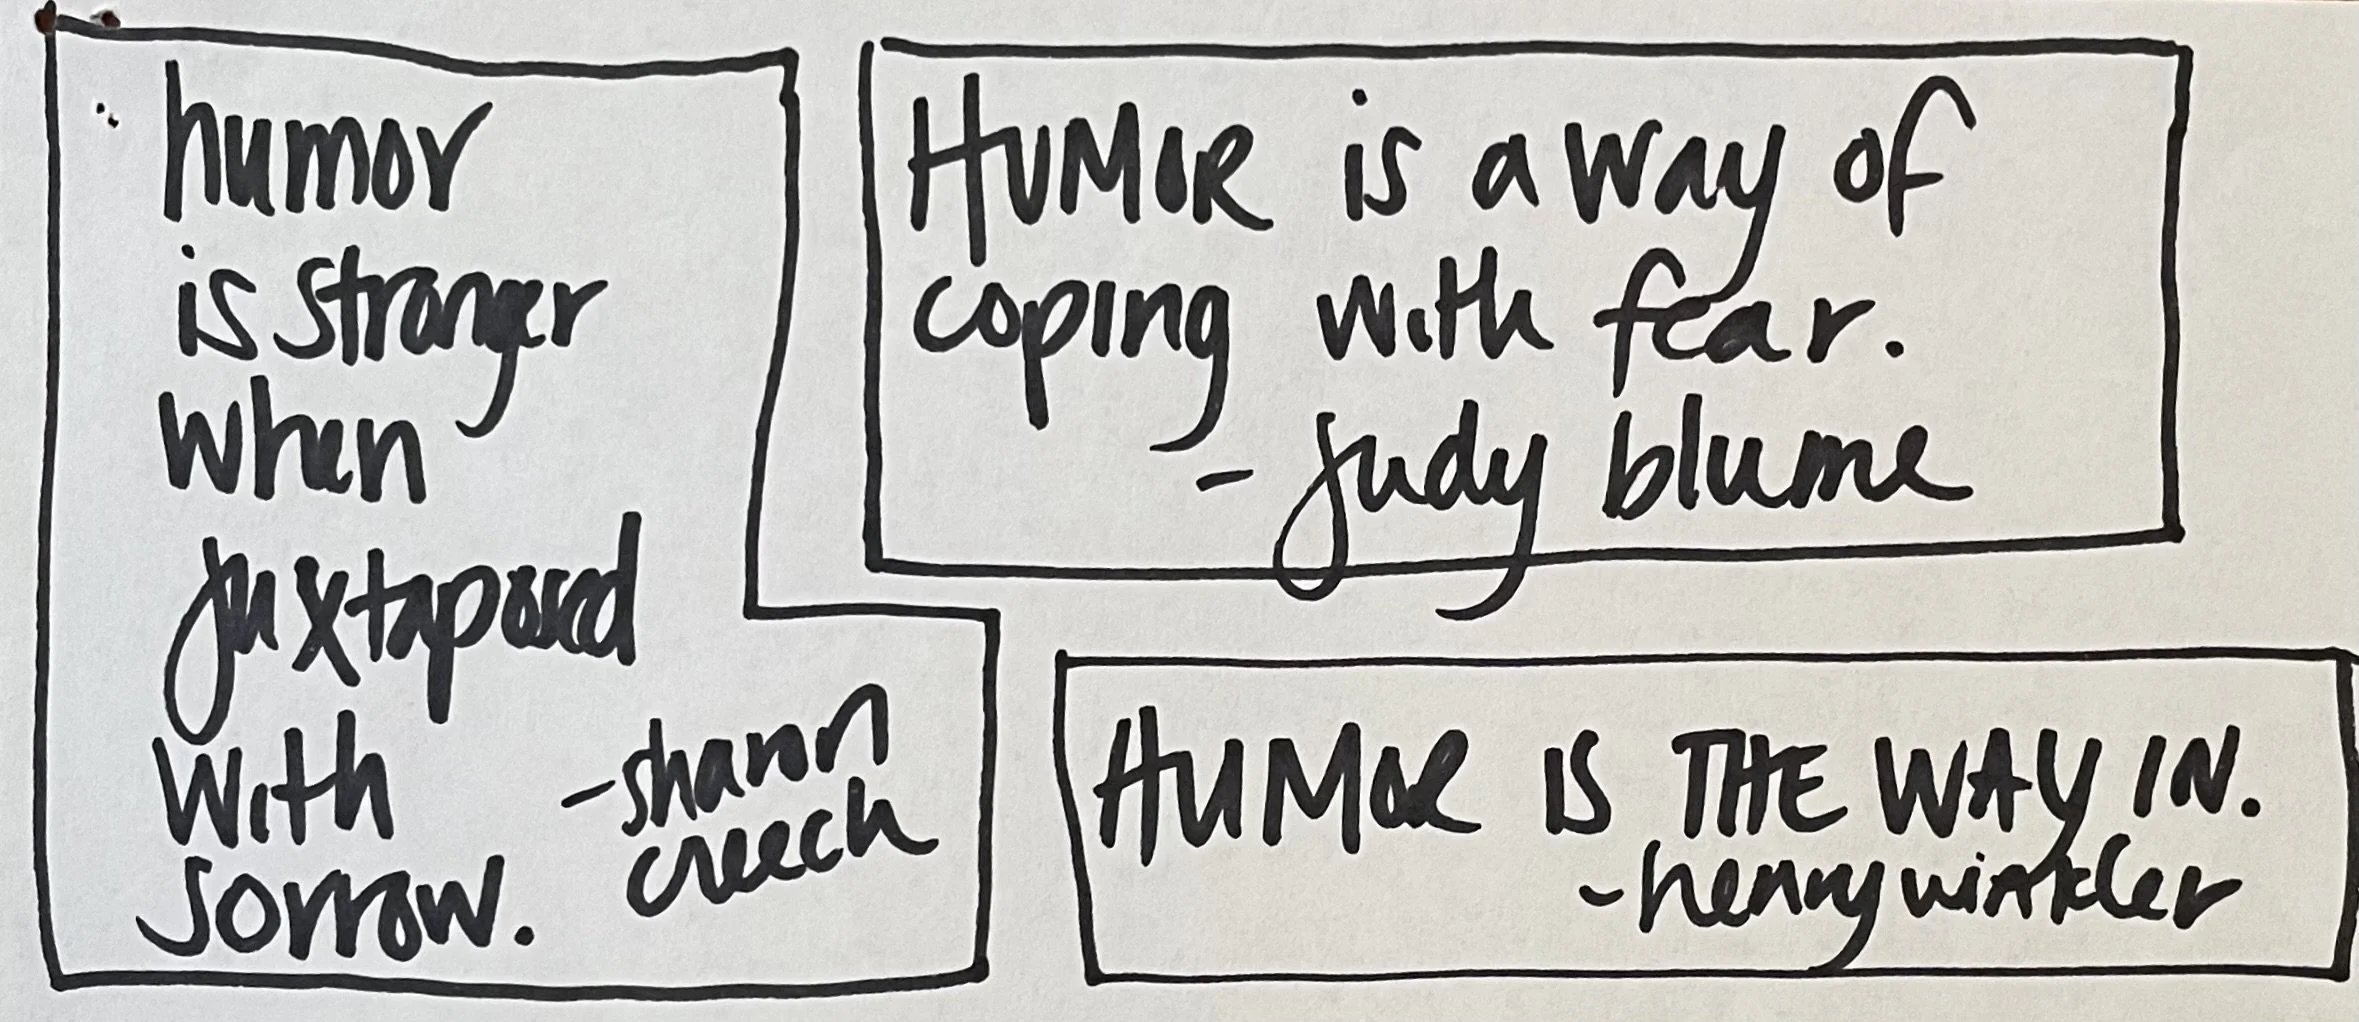 humor
is stronger
when
juxtaposed
with
sorrow.
-sharon
creech
HUMOR is a way of
coping with fear.
- judy blume
HUMOR IS THE WAY IN.
-henry winkler